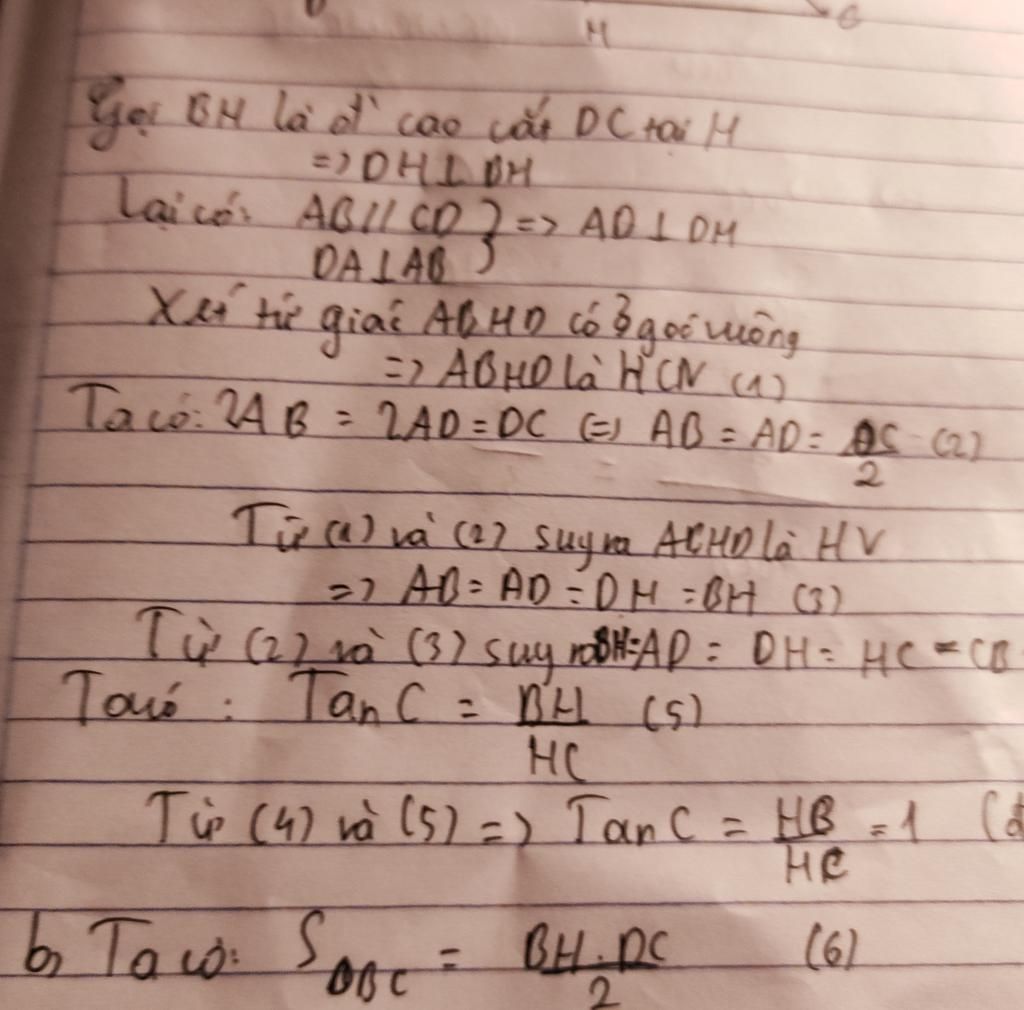 H C
Gọi BH là đ' cao cắt DC tại H
=> DH⊥BH
Lại có: AB // CD } => AD ⊥ DH
DA⊥AB
Xét tứ giác ABHD có 3 góc vuông
=> ABHD là HCN (1)
Ta có: 2AB = 2AD = DC (=) AB = AD = DC/2 (2)
Từ (1) và (2) suy ra ABHD là HV
=> AB = AD = DH = BH (3)
Từ (2) và (3) suy ra BH = AD = DH = HC = CB
Ta có : Tan C = BH/HC (5)
Từ (4) và (5) => Tan C = HB/HC = 1 (đ
b, Ta có: S DBC = BH . DC/2 (6)